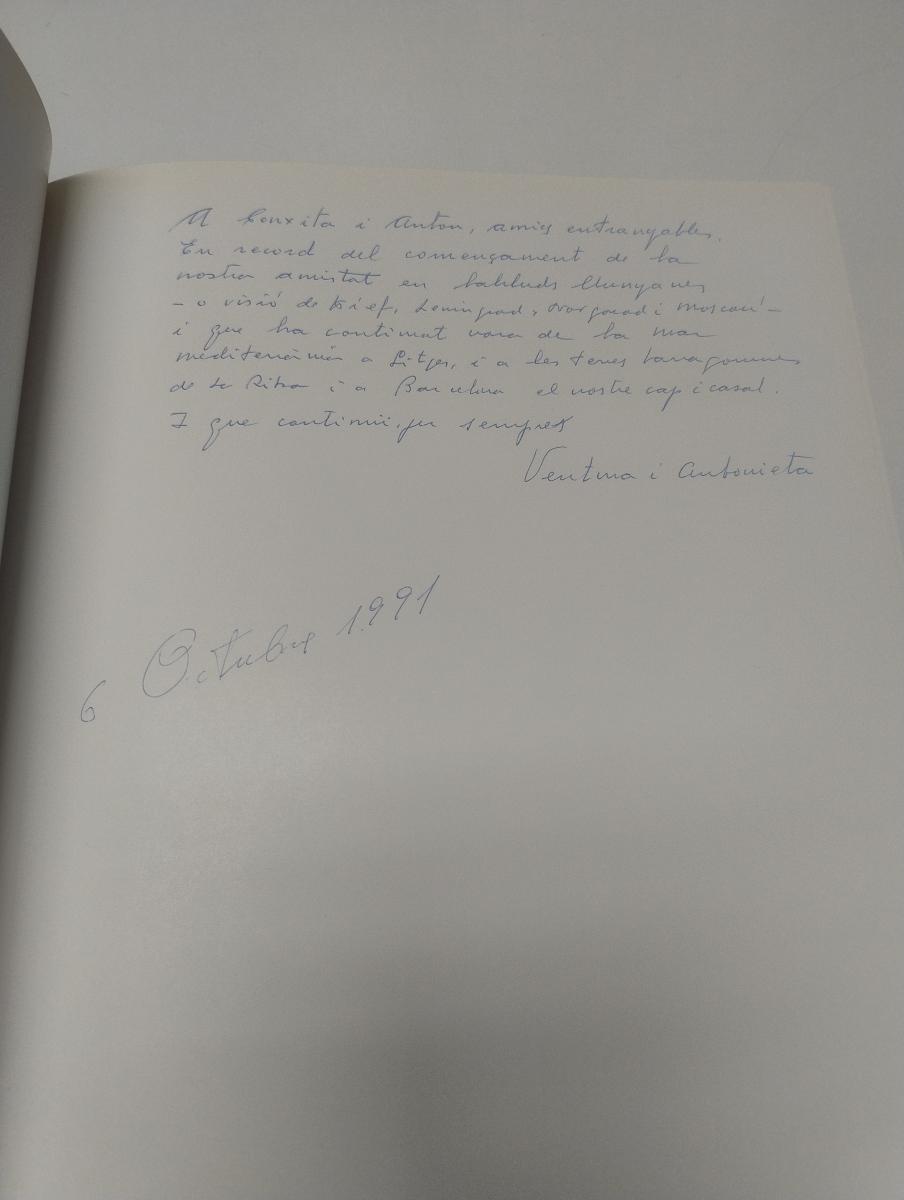 A Conxita i Anton, amics entranyables.
En record del començament de la
nostra amistat en latituds llunyanes
- o visió de Kíef, Leningrad, Novgorod i Moscou -
i que ha continuat vora de la mar
mediterrània a Sitges, i a les terres tarragonines
de la Riba i a Barcelona el nostre cap i casal.
I que continuï per sempre
Ventura i Antonieta
6 Octubre 1991